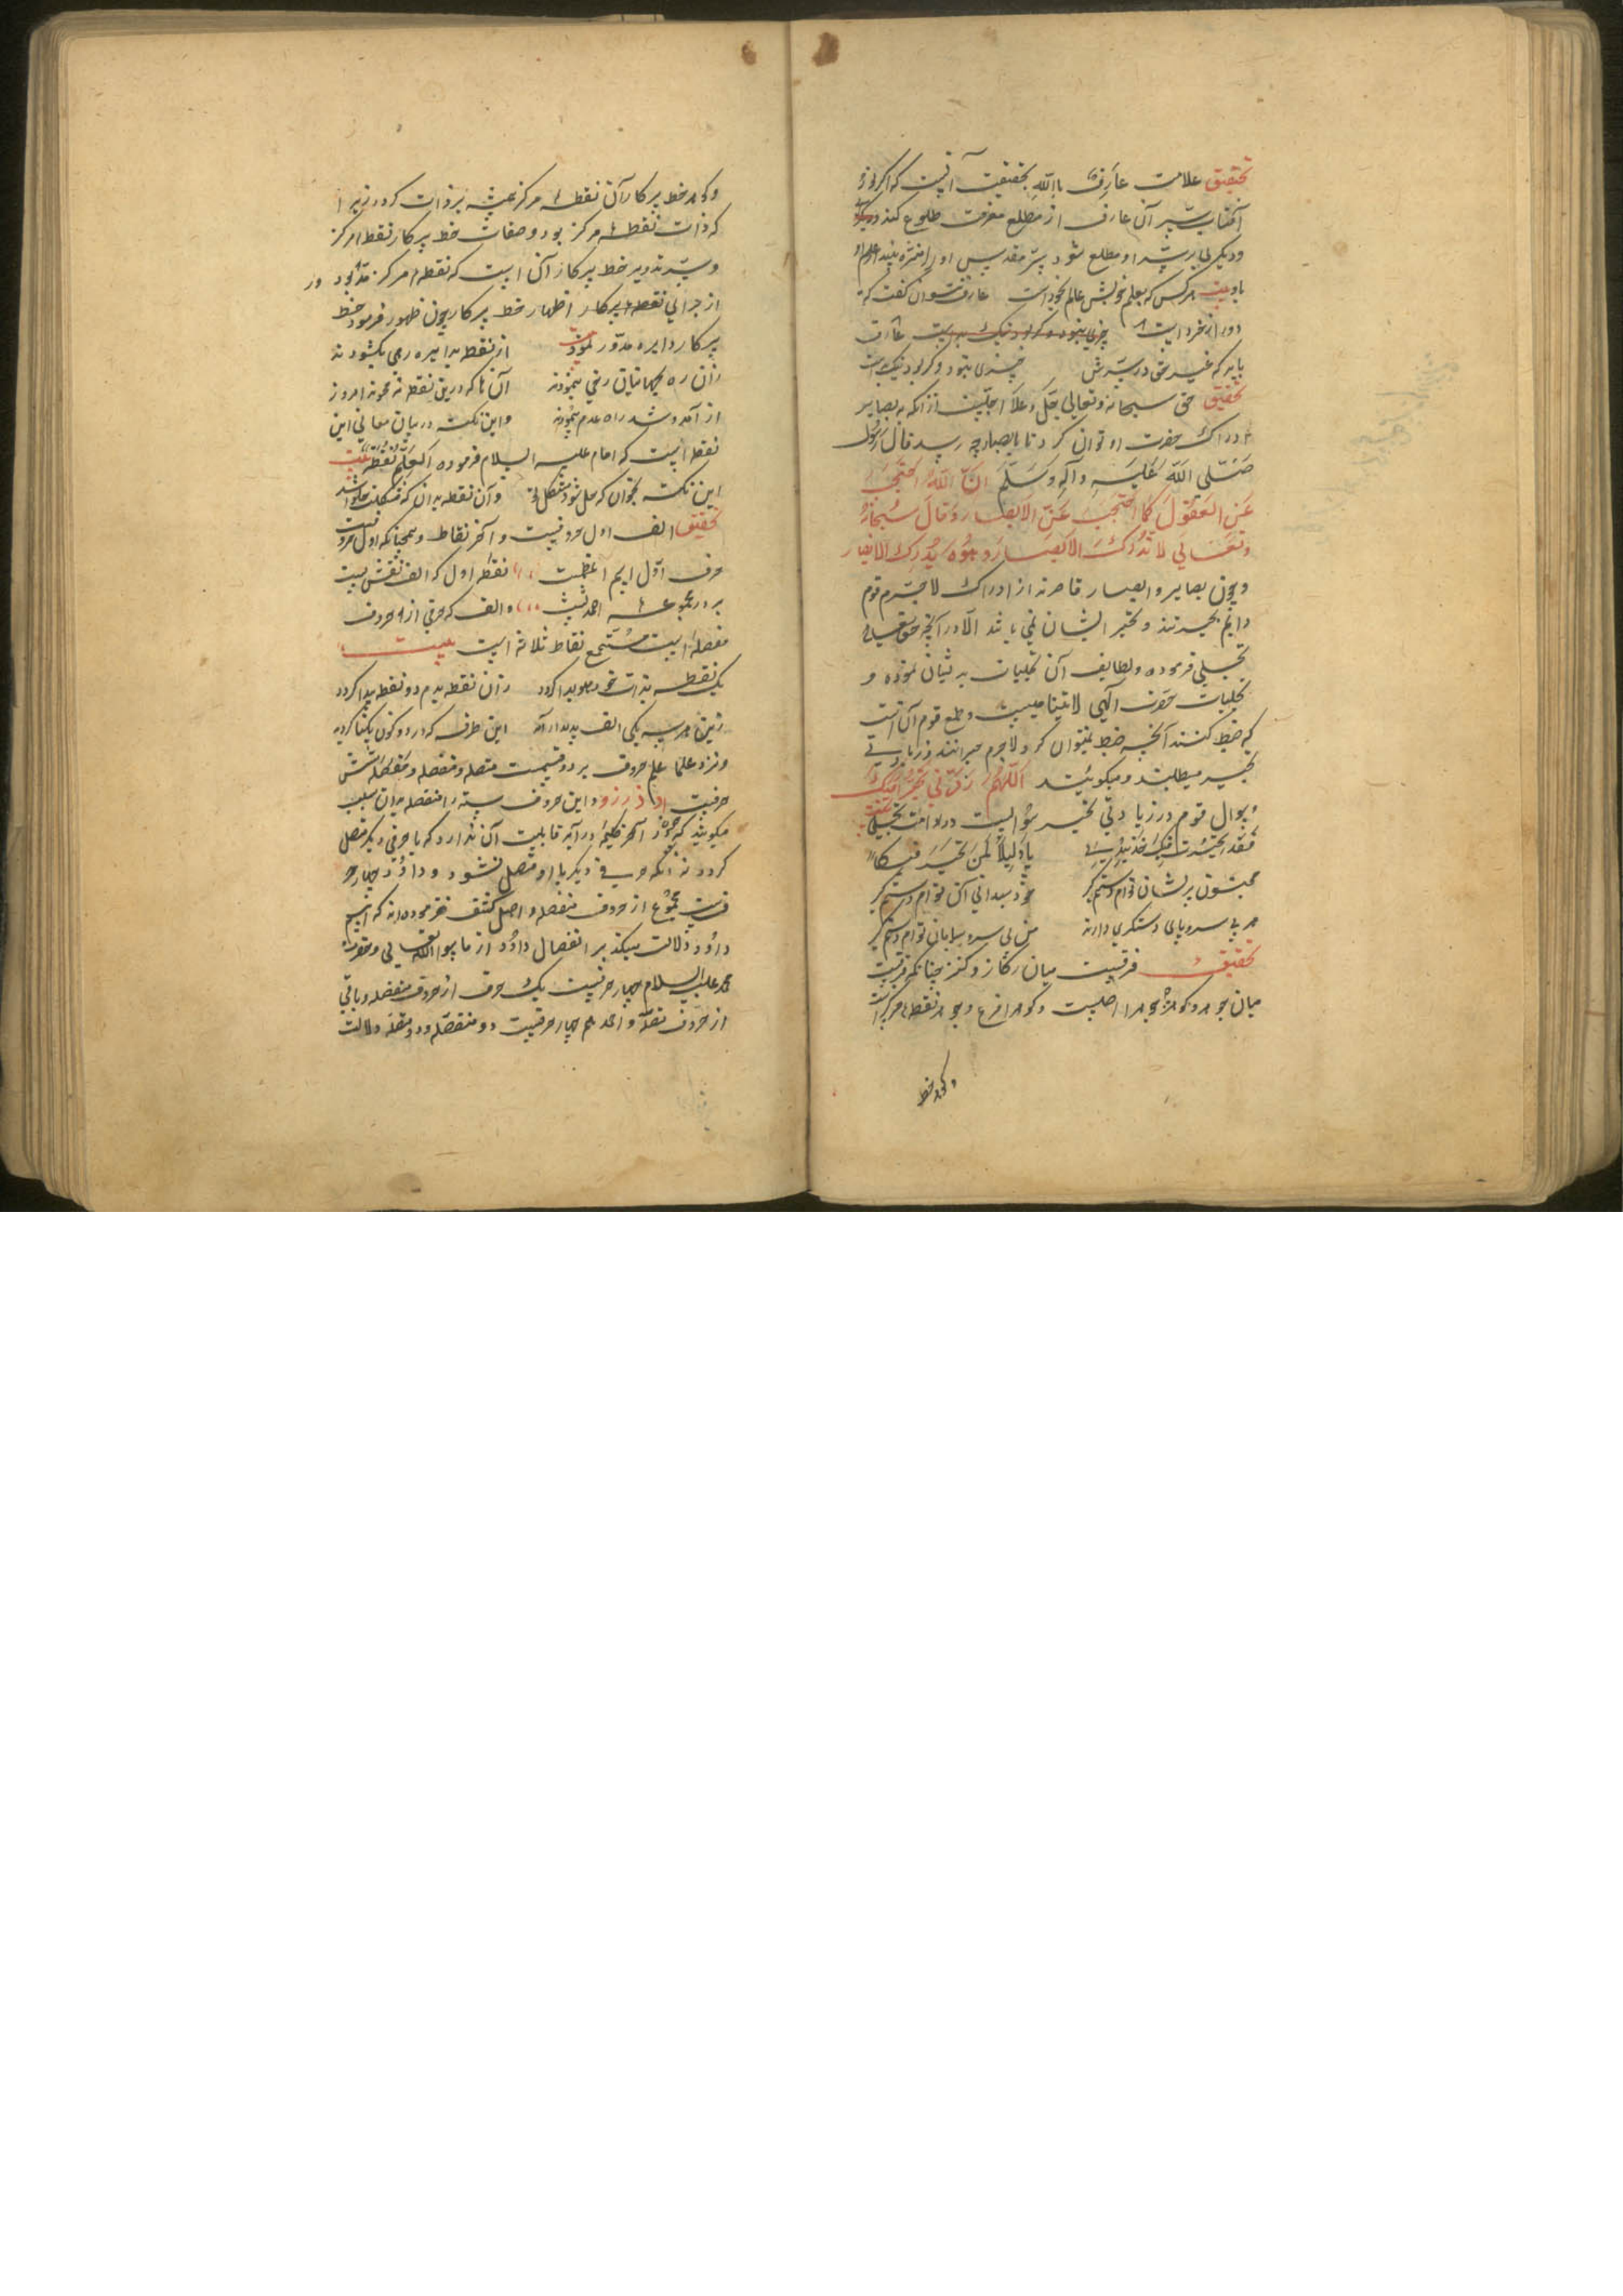 تحقیق علامت عارف باللّه بحقیقت آنست که اگر نور
آفتاب سرّ آن عارف از مطلع معرفت طلوع کند
و دیگری بر سرّ او مطلع شود بسرّ مقدس او را منزه بیند
بیت هر کس که بعلم خویش عالم بخود است عارف نتوان گفت که
دور از خرد است عارف
باید که غیر حق در سرّش چیزی نبود و کر بود نیک بد است
تحقیق حق سبحانه و تعالی جلّ و علا اجلّست از آنکه به بصایر
ادراک حضرت او توان کرد تا بابصار چه رسد قال رسول
صَلّی اللّه عَلَیهِ وآلِهِ وَسَلَّم انّ اللّهَ احتجَبَ
عَنِ العُقولِ کما احتَجَبَ عَنِ الاَبصار وَقالَ سُبحانهُ
وَتعَالی لا تُدرکهُ الاَبصَار وَهُوَ یُدرِکُ الابصَار
و چون بصایر و ابصار قاصرند از ادراک لاجرم قوم
دایم بحیرتند و تحیر ایشان نمی باشد الا در آنچه حق تعالی
تجلی فرموده و لطایف آن تجلیات بدیشان نموده و
تجلیات حضرت الهی لایتناهیست و طمع قوم آن است
که ضبط کنند آنچه ضبط نمیتوان کرد و لاجرم حیرانند و زیادتی
تحیر میطلبند و میگویند اللّهُمَّ زِدنی تحَیّراً فیکَ
و سوال قوم در زیادتی تحیر سؤالیست در دوامت تجلی
قَد تحَیّرت فیکَ خُذ بیدی یا دَلِیلاً لِمَن تحَیَّرَ فیکا
مجنون پریشان توام دستم گیر خود میدانی آنِ توام دستم گیر
هر بی سروپای دستگیری دارد من بی سروسامان توام دستم گیر
تحقیق فرقیست میان رکاز و کنز چنانکه فرقیست
میان
وگوهر خط
وگوهر خط پرکار آن نقطهٔ مرکز
که ذات نقطهٔ مرکز بود و صفات خط پرکار نقطهٔ مرکز
و سرّ تدویر خط پرکار آن است که نقطهٔ مرکز مدوّر بود و
از حوالی نقطهٔ پرکار اظهار خط پرکار چون ظهور فرمود خط
پرکار دایره مدوّر نمود بیت از نقطه بدایره رهی بگشودند
زان ره بجهانیان رخی بنمودند آن ها که درین نقطه نه محوند امروز
از آمد و شد راه عدم پیمودند و این نکته در بیان معانی این
نقطه است که امام علیه السلام فرموده العِلمُ نُقطَة بیت
این نکته بخوان که حل شود مشکل تو و آن نقطه بدان که
تحقیق الف اول حروفست و آخر نقاط و همچنانکه اول حروفست
حرف اوّل اسم اعظمست نقطه اول که الف نقش بست
بر در مجموعهٔ احمد نشست و الف که حرفی از حروف
منفصله است مُستَجمِع نقاط ثلاثه است بیت
یک نقطه بذات خود هویدا گردد زان نقطه بدم دو نقطه پیدا گردد
زین هر سه یکی الف پدیدار آید این طرفه که در دو کون یکتا گردد
و نزد علما علم حروف بر دو قسمست متصله و منفصله و منفصله شش
حرفست ا د ذ ر ز و و این حروف سته را منفصله بدان سبب
میگویند که چون در آخر کلمه درآید قابلیت آن ندارد که با حرفی دیگر متصل
گردد نه آنکه حرفی دیگر با او متصل نشود و داوُد چهار
حرفست مجموع از حروف منفصله و اهل کشف فرموده اند که اسم
داوُد دلالت میکند بر انفصال داوُد از ما سوا الله تعالی و حضرت
محمد علیه السلام چهار حرفیست یک حرف از حروف منفصله و باقی
از حروف متصله و احمد هم چهار حرفیست دو منفصله و دو متصله دلالت